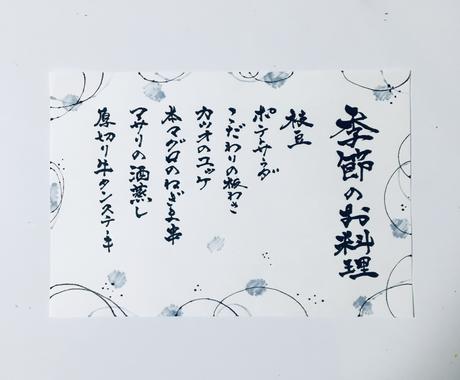 季節のお料理
枝豆
ポテトサラダ
こだわりの板わさ
カツオのユッケ
本マグロのねぎま串
アサリの酒蒸し
厚切り牛タンステーキ